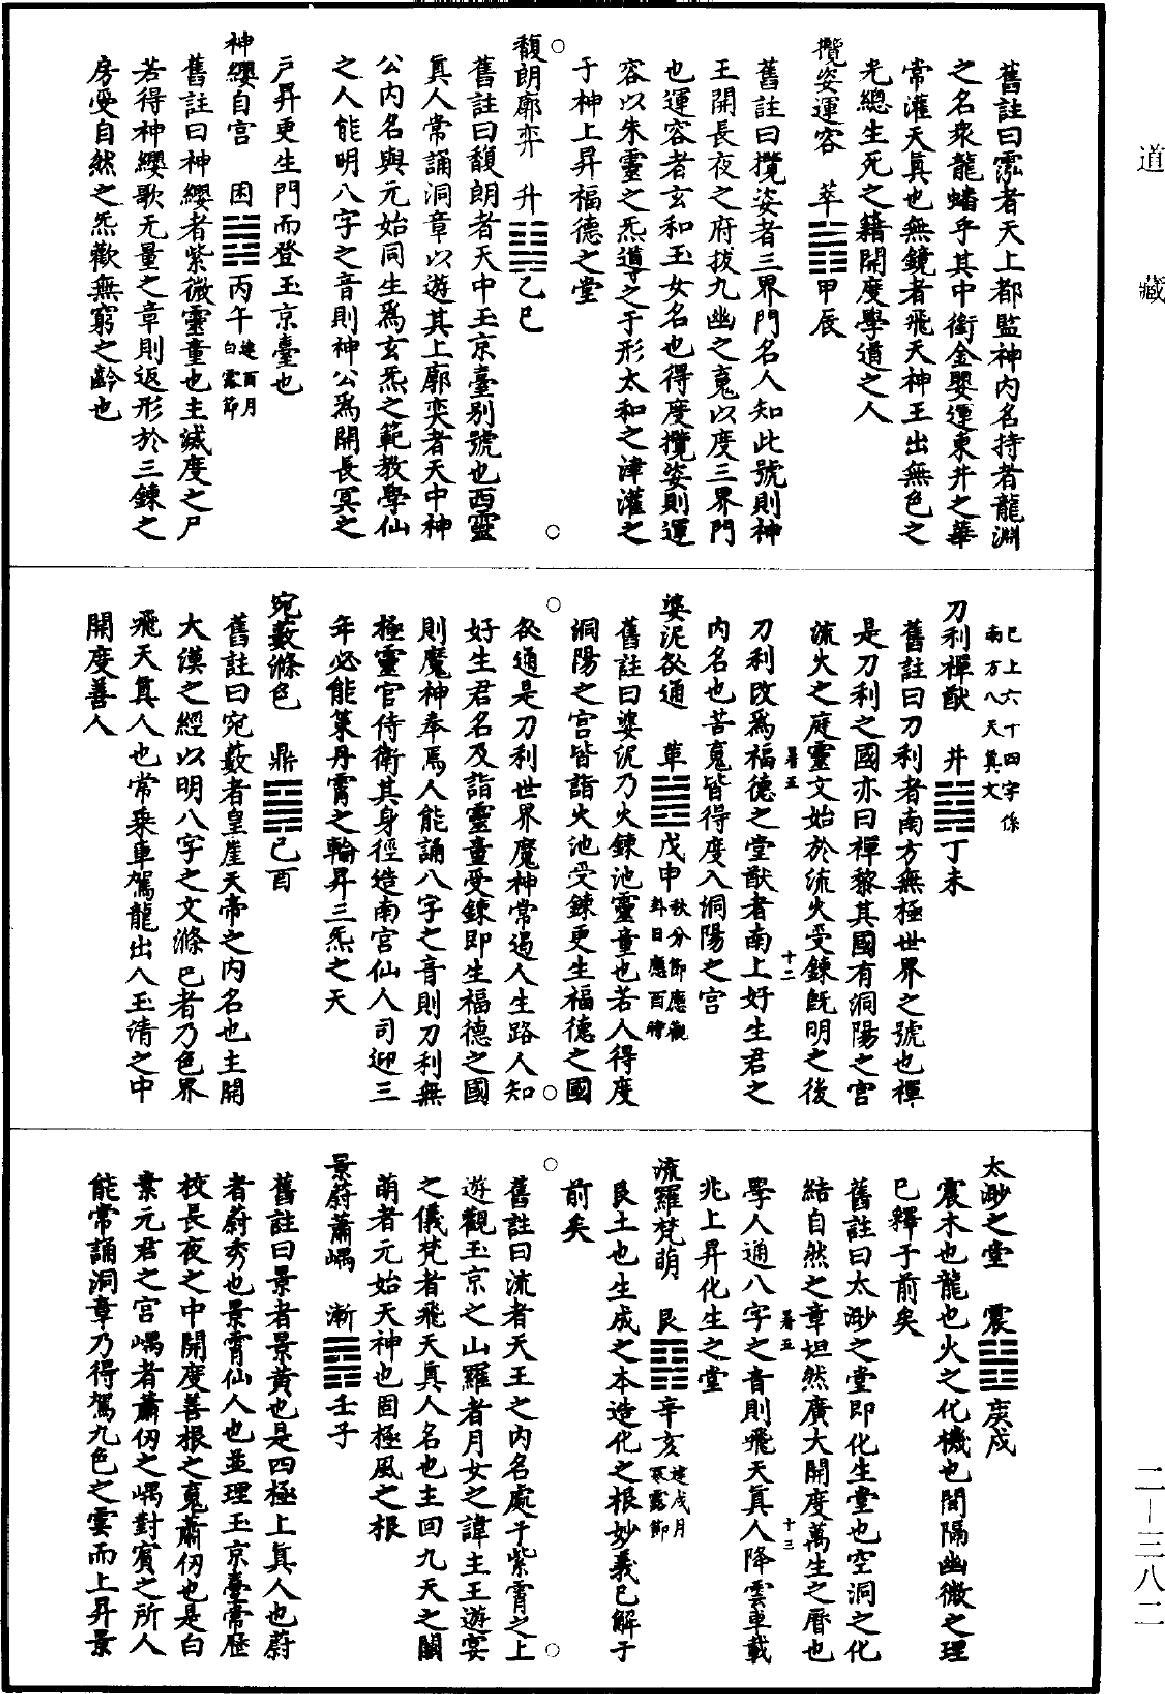 道藏
舊註曰霐者天上都監神內名持者龍淵
之名衆龍蟠乎其中銜金嬰運東井之華
常灌天眞也無鏡者飛天神王出無色之
光總生死之籍開度學道之人
攬姿運容　萃䷬甲辰
舊註曰攬姿者三界門名人知此號則神
王開長夜之府拔九幽之䰟以度三界門
也運容者玄和玉女名也得度攬姿則運
容以朱靈之炁導之于形太和之津灌之
于神上昇福德之堂
馥朗廓弈　升䷭乙巳
舊註曰馥朗者天中玉京臺別號也西靈
眞人常誦洞章以遊其上廓奕者天中神
公內名與元始同生爲玄炁之範教學仙
之人能明八字之音則神公爲開長冥之
戶昇更生門而登玉京臺也
神纓自宮　困䷮丙午建酉月白露節
舊註曰神纓者紫微靈童也主滅度之尸
若得神纓歌无量之章則返形於三鍊之
房受自然之炁歡無窮之齡也
巳上六十四字係南方八天眞文
刀利禪猷　井䷯丁未
舊註曰刀利者南方無極世界之號也禪
是刀利之國亦曰禪黎其國有洞陽之宮
流火之庭靈文始於流火受鍊旣明之後
暑五　十二
刀利改爲福德之堂猷者南上好生君之
內名也苦䰟皆得度入洞陽之宮
婆泥咎通　革䷰戊申秋分節應觀卦日應酉律
舊註曰婆泥乃火鍊池靈童也若人得度
洞陽之宮皆詣火池受鍊更生福德之國
咎通是刀利世界魔神常遏人生路人知
好生君名及詣靈童受鍊即生福德之國
則魔神奉焉人能誦八字之音則刀利無
極靈官侍衛其身徑造南宮仙人司迎三
年必能策丹霄之輪昇三炁之天
宛藪滌色　鼎䷱己酉
舊註曰宛藪者皇崖天帝之內名也主開
大漠之經以明八字之文滌巴者乃色界
飛天眞人也常乗車駕龍出入玉淸之中
開度善人
太眇之堂　震䷲庚戌
震木也龍也火之化機也間隔幽微之理
已釋于前矣
舊註曰太眇之堂即化生堂也空洞之化
結自然之章坦然廣大開度萬生之曆也
暑五　十三
學人通八字之音則飛天眞人降雲車載
兆上昇化生之堂
流羅梵萌　艮䷳辛亥建戌月寒露節
艮土也生成之本造化之根妙義已解于
前矣
舊註曰流者天王之內名處于紫霄之上
遊觀玉京之山羅者月女之諱主王遊宴
之儀梵者飛天眞人名也主回九天之關
萌者元始天神也固極風之根
景蔚蕭嵎　漸䷴壬子
舊註曰景者景黃也是四極上眞人也蔚
者蔚秀也景霄仙人也並理玉京臺常歷
校長夜之中開度善根之䰟蕭仞也是白
素元君之宮嵎者蕭仞之嵎對賓之所人
能常誦洞章乃得駕九色之雲而上昇景
二—三八二